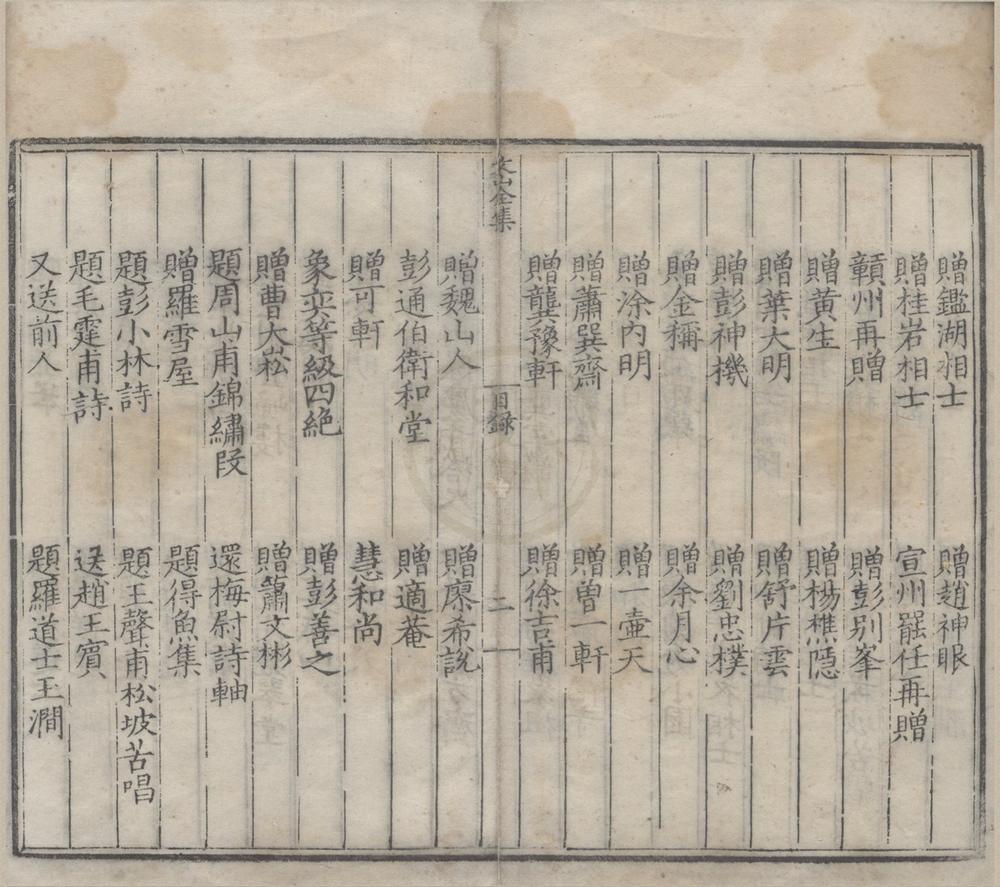 贈鑑湖相士　贈趙神眼
贈桂岩相士　宣州罷任再贈
贛州再贈　贈彭別峯
贈黄生　贈楊樵隱
贈葉大明　贈舒片雲
贈彭神機　贈劉忠樸
贈金稱　贈余月心
贈涂內明　贈一壷天
贈蕭巽齋　贈曽一軒
贈龔豫軒　贈徐吉甫
文山全集　目録　二
贈魏山人　贈廖希說
彭通伯衛和堂　贈適菴
贈可軒　慧和尚
象奕等級四絶　贈彭善之
贈曹大崧　贈蕭文彬
題周山甫錦繡段　還梅尉詩軸
贈羅雪屋　題得魚集
題彭小林詩　題王聲甫松坡苦唱
題毛霆甫詩　送趙王賓
又送前人　題羅道士玉澗